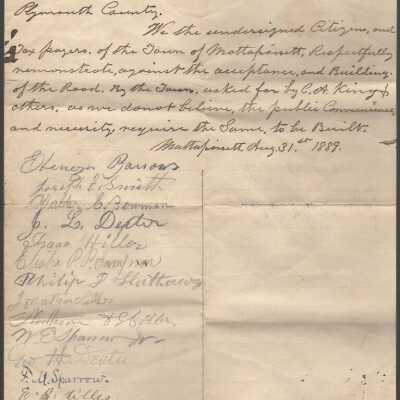 Plymouth County.
We the undersigned Citizens, and
Tax payers, of the Town of Mattapoisett, Respectfully
remonstrate, against the acceptance, and Building
of the Road, By the Town, asked for by C. A. King &
others. as we do not believe, the public Convenience,
and necessity, require the Same, to be Built.
Mattapoisett Aug. 31.st 1889.
Ebenezer Barrows
Joseph E. Smith
C. Bowman
C. L. Dexter
Isaac Hiller
P.
Philip
Jonathan

W. E. Sparrow Jr
Geo H Dexter
F. M. Sparrow.
E. B. Hiller